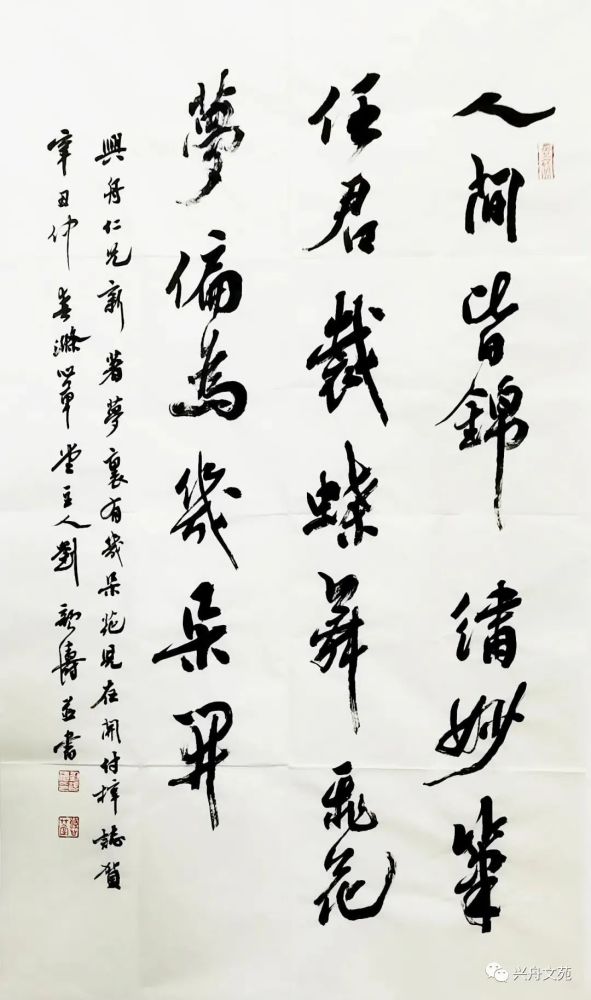 人間皆錦繡妙筆
任君裁蝶舞飛花
夢偏為幾朵開
興舟仁兄新著夢裏有幾朵花兒在開付梓誌賀
辛丑仲春滌草堂主人劉濤並書
兴舟文苑